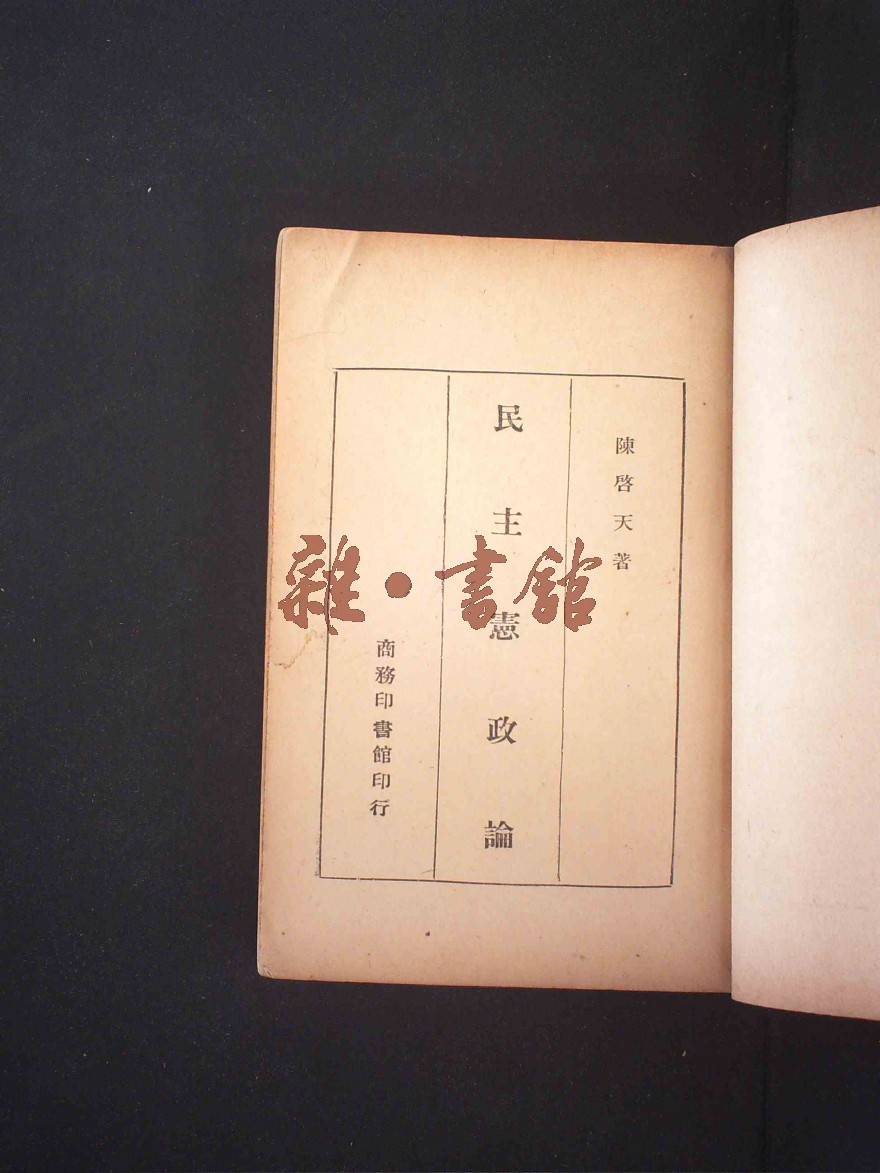 陳啓天著
民主憲政論
商務印書館印行
雜·書館